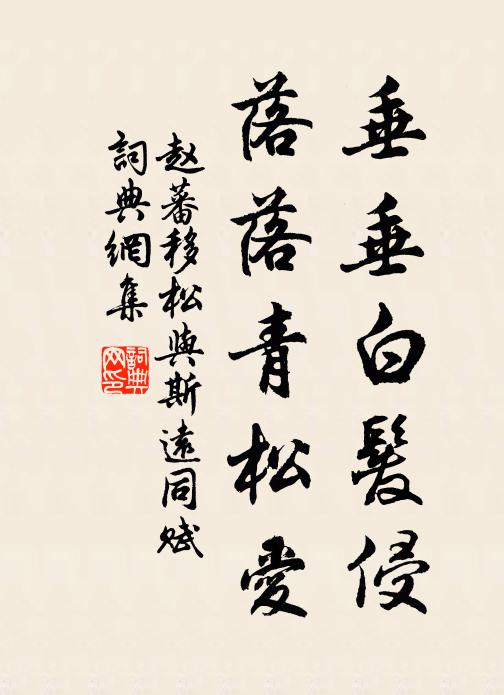 垂垂白髮侵
落落青松愛
赵蕃移松與斯遠同赋
詞典網集
詞典网印